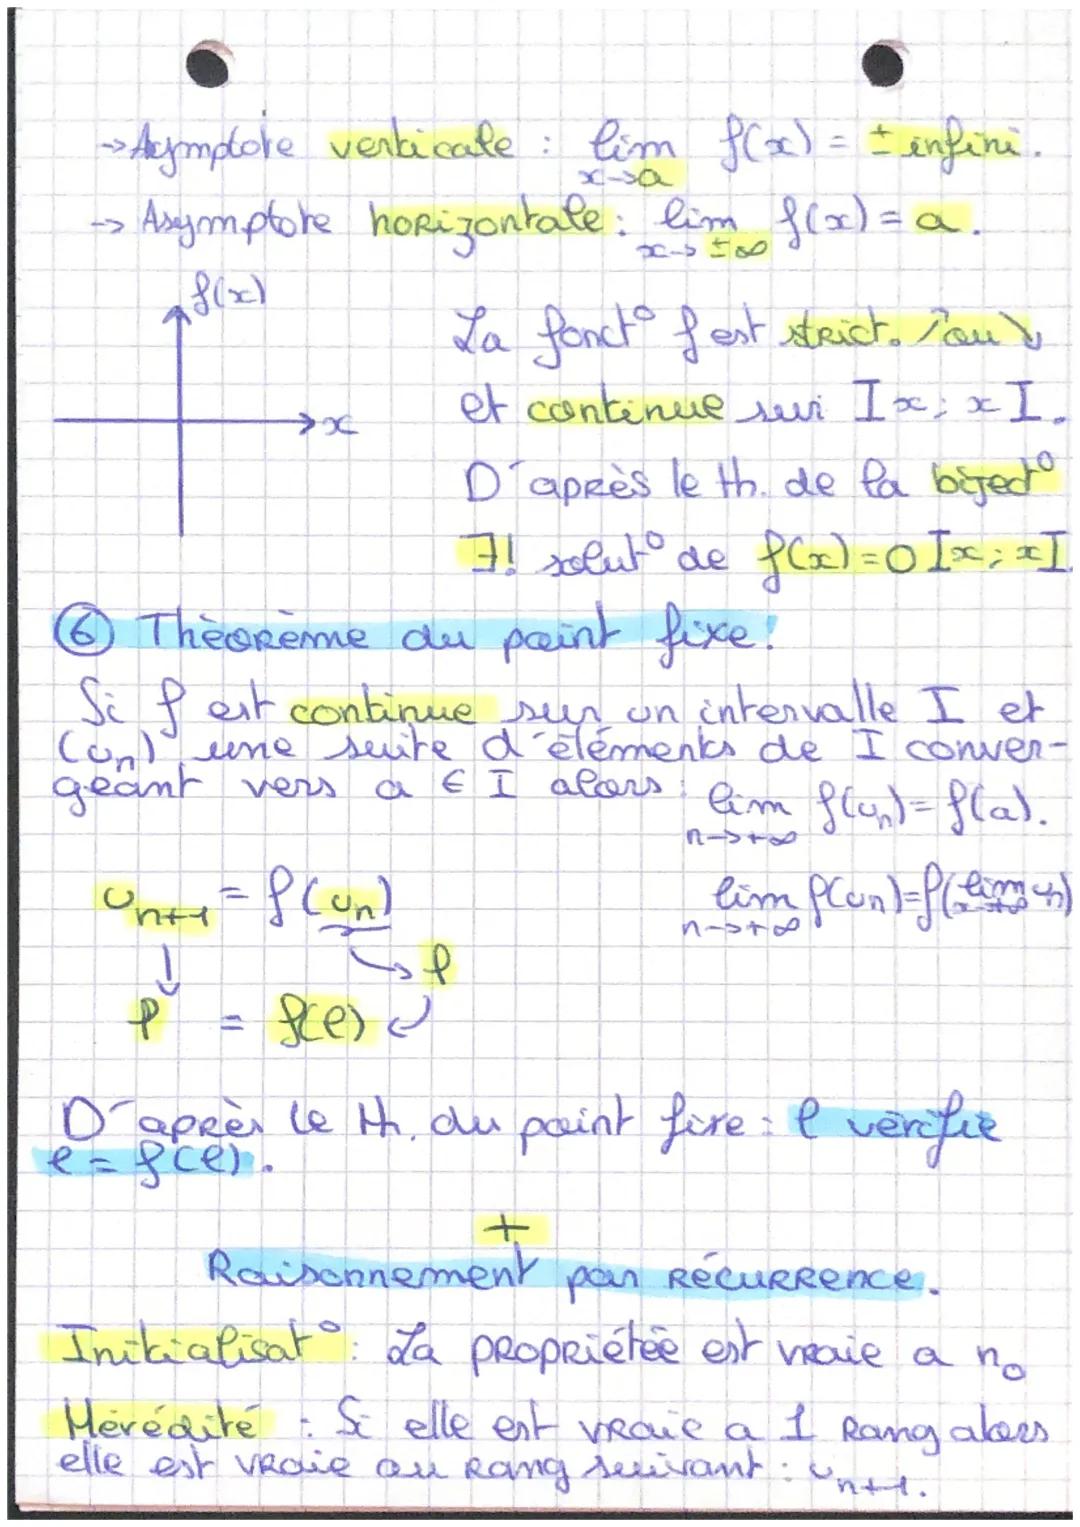 → Asymptote verticale : lim f(x) = ± infini.
x→a
→ Asymptote horizontale : lim f(x) = a.
x→ ±∞
f(x)
x
La fonct° f est strict. ↗ou↘
et continue sur Ix; xI.
D'après le th. de la biject°
∃! solut° de f(x)=0 Ix; xI.
⑥ Théorème du point fixe:
Si f est continue sur un intervalle I et
(un) une suite d'éléments de I conver-
geant vers a ∈ I alors : lim f(un)=f(a).
n→+∞
un+1 = f(un)
lim f(un)=f(lim un)
n→+∞ x→+∞
↓ ↘ l
l = f(l) ↙
D'après le th. du point fixe : l vérifie
l = f(l).
+
Raisonnement par récurrence.
Initialisat° : La propriétée est vraie a n0
Hérédité : Si elle est vraie a 1 rang alors
elle est vraie au rang suivant : un+1.